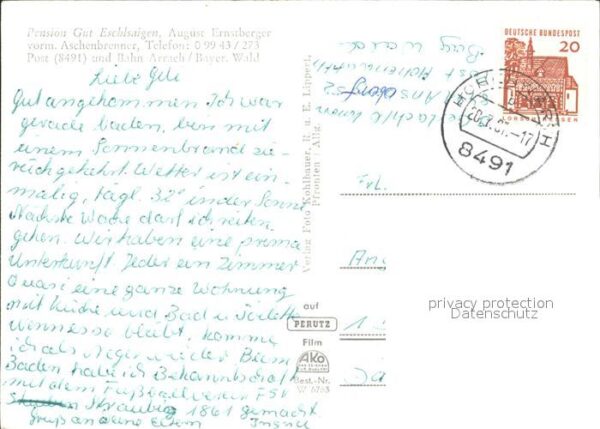 Pension Gut Eschlsaigen, August Ernstberger
vorm. Aschenbrenner, Telefon: 0 99 43 / 273
Post (8491) und Bahn Arrach / Bayer. Wald
Liebe Geli
Gut angekommen. Ich war
gerade baden, bin mit
einem Sonnenbrand zu-
rückgekehrt. Wetter ist ein-
malig, tägl. 32° in der Sonne
Nächste Woche darf ich reiten
gehen. Wir haben eine prima
Unterkunft. Jeder ein Zimmer
Quasi eine ganze Wohnung
mit Küche und Bad u. Toilette
wenn es so bleibt, komme
ich als Neger wieder. Beim
Baden habe ich Bekanntschaft
mit dem Fußballverein FSV
Straubing 1861 gemacht
Gruß an deine Eltern
Verlag Foto Kohlbauer, R. u. E. Lippert,
Pfronten / Allg.
auf
PERUTZ
Film
Ako
Best.-Nr.
DEUTSCHE BUNDESPOST
20
8491
Frl.
privacy protection
Datenschutz